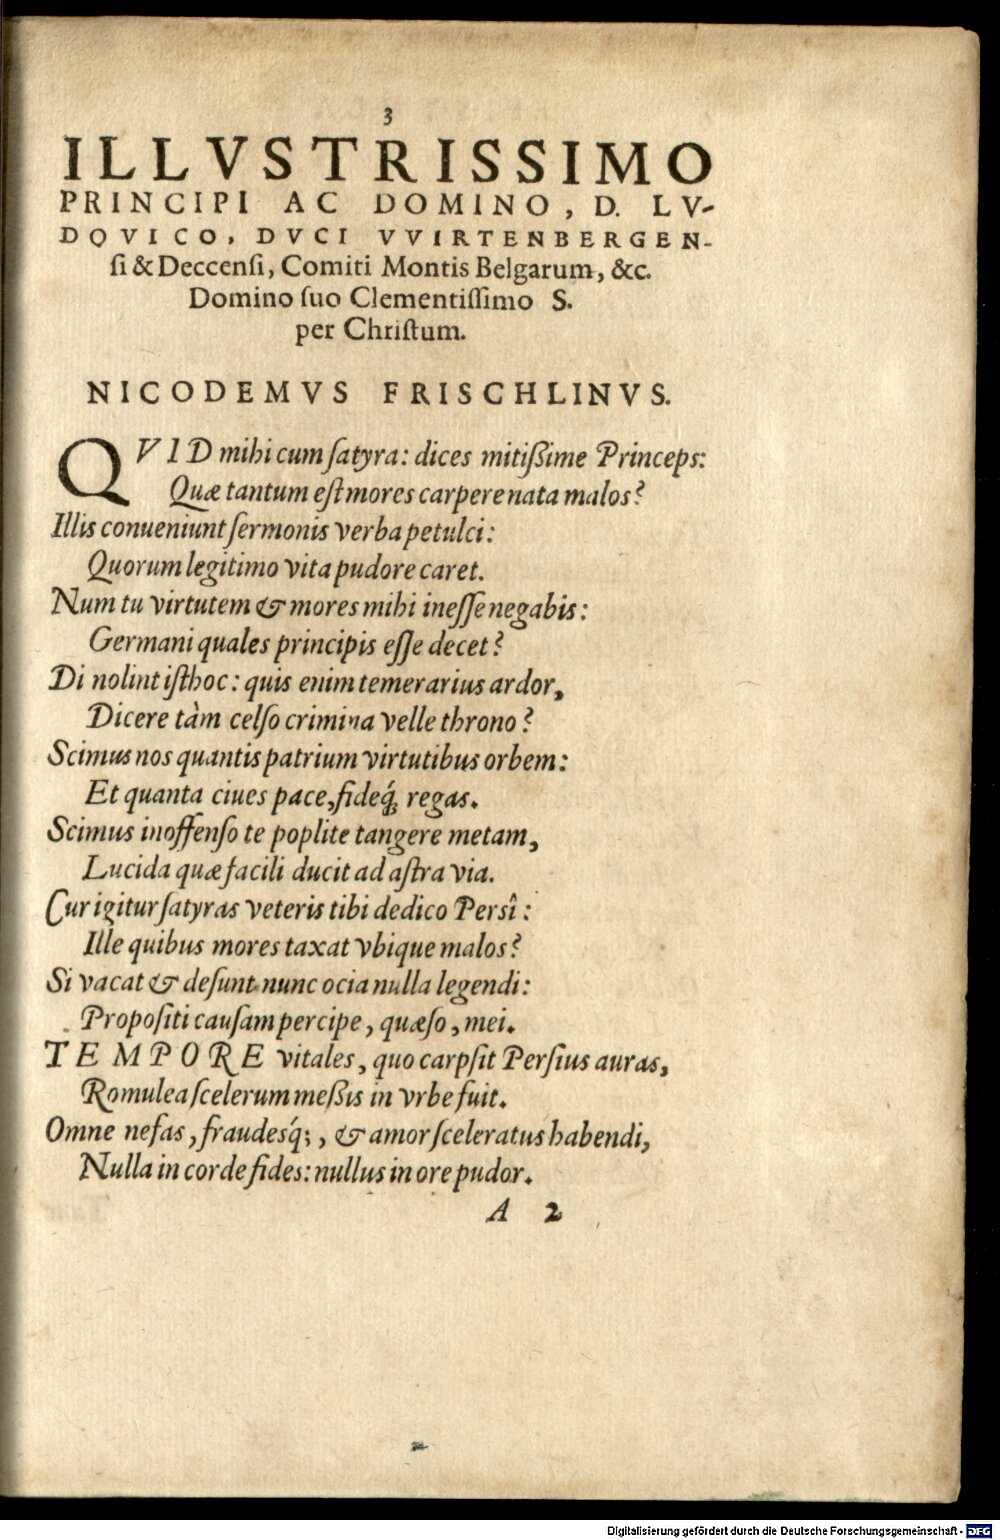 3
ILLVSTRISSIMO
PRINCIPI AC DOMINO, D. LV-
DOVICO, DVCI VVIRTENBERGEN-
ſi & Deccenſi, Comiti Montis Belgarum, &c.
Domino ſuo Clementiſſimo S.
per Chriſtum.
NICODEMVS FRISCHLINVS.
QVID mihi cum ſatyra: dices mitißime Princeps:
Quæ tantum eſt mores carpere nata malos?
Illis conueniunt ſermonis verba petulci:
Quorum legitimo vita pudore caret.
Num tu virtutem & mores mihi ineſſe negabis:
Germani quales principis eſſe decet?
Di nolint iſthoc: quis enim temerarius ardor,
Dicere tàm celſo crimina velle throno?
Scimus nos quantis patrium virtutibus orbem:
Et quanta ciues pace, fideq́; regas.
Scimus inoffenſo te poplite tangere metam,
Lucida quæ facili ducit ad aſtra via.
Cur igitur ſatyras veteris tibi dedico Persî:
Ille quibus mores taxat vbique malos?
Si vacat & deſunt nunc ocia nulla legendi:
Propoſiti cauſam percipe, quæſo, mei.
TEMPORE vitales, quo carpſit Perſius auras,
Romulea ſcelerum meßis in vrbe fuit.
Omne nefas, fraudesq́;, & amor ſceleratus habendi,
Nulla in corde fides: nullus in ore pudor.
A 2
Digitalisierung gefördert durch die Deutsche Forschungsgemeinschaft - DFG